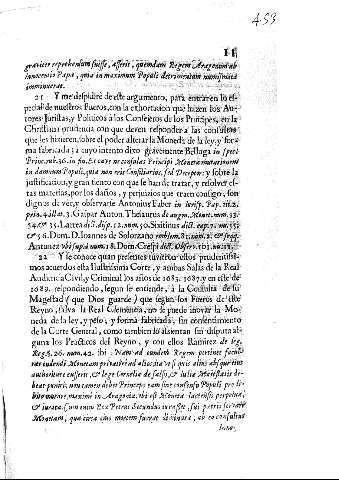 453
11
graviter reprehensum fuisse, asserit, quemdam Regem Aragonum ab
Innocentio Papa, quia in maximum Populi detrimentum numismata
imminuerat.
21 Y me despidirè de este argumento, para entrar en lo es-
pecial de nuestros Fueros, con la exhortacion que hazen los Au-
tores Juristas, y Politicos à los Consejeros de los Principes, en la
Christiana prudencia con que deven responder à las consultas
que les hizieren, sobre el poder alterar la Moneda de la ley, y for-
ma fabricada; à cuyo intento dixo gravemente Belluga in spec.
Princ. rub. 36. in fin. Et cave ne consulas Principi Monetæ mutationem
in damnum Populi, quia non eris Consiliarius, sed Deceptor: y sobre la
justificacion, y gran tiento con que se han de tratar, y resolver es-
tas materias, por los daños, y perjuizios que traen consigo, son
dignos de ver, y observarse Antonius Faber in
3. Gaspar Anton. Thesaurus de augm. Monet. num. 53.
54. & 55. Larrea decis. disp. 12. num. 50. Sixtinus dict. cap. 7. num. 55.
& 56. Dom. D. Ioannes de Solorzano emblem. 81. num. 2. & seqq.
Antunez ubi supra num. 18. Dom. Crespi dict. observ. 103. n. 13.
22 Y se conoce quan presentes tuvieron ellos prudentissi-
mos acuerdos esta Ilustrissima Corte, y ambas Salas de la Real
Audiencia Civil, y Criminal los años de 1683. 1687. y en este de
1689. respondiendo, segun se entiende, à la Consulta de su
Magestad (que Dios guarde) que segun los Fueros de este
Reyno, salva la Real Clemencia, no se puede inovar la Mo-
neda de la ley, y peso, y forma fabricada, sin consentimiento
de la Corte General, como tambien lo assientan sin disputa al-
guna los Practicos del Reyno, y con ellos Ramirez de leg.
Reg. §. 26. num. 42. ibi: Nam ad eundem Regem pertinet facul-
tas cudendi Monetam privativè ad alios, ita ve si quis alius absque eius
authoritate cusserit, ex lege Cornelia de falso, & iulia Maiestatis de-
beat puniri, non tamen debet Princeps eam sine consensu Populi pro li-
bito mutare, maximè in Aragonia, ubi est Moneta iaccensis perpetua,
& iurata. Cum enim Rex Petrus Secundus iurasset, sui patris servare
Monetam, quæ circa eius mortem fuerat diminuta, ab eo consultus
Inno-